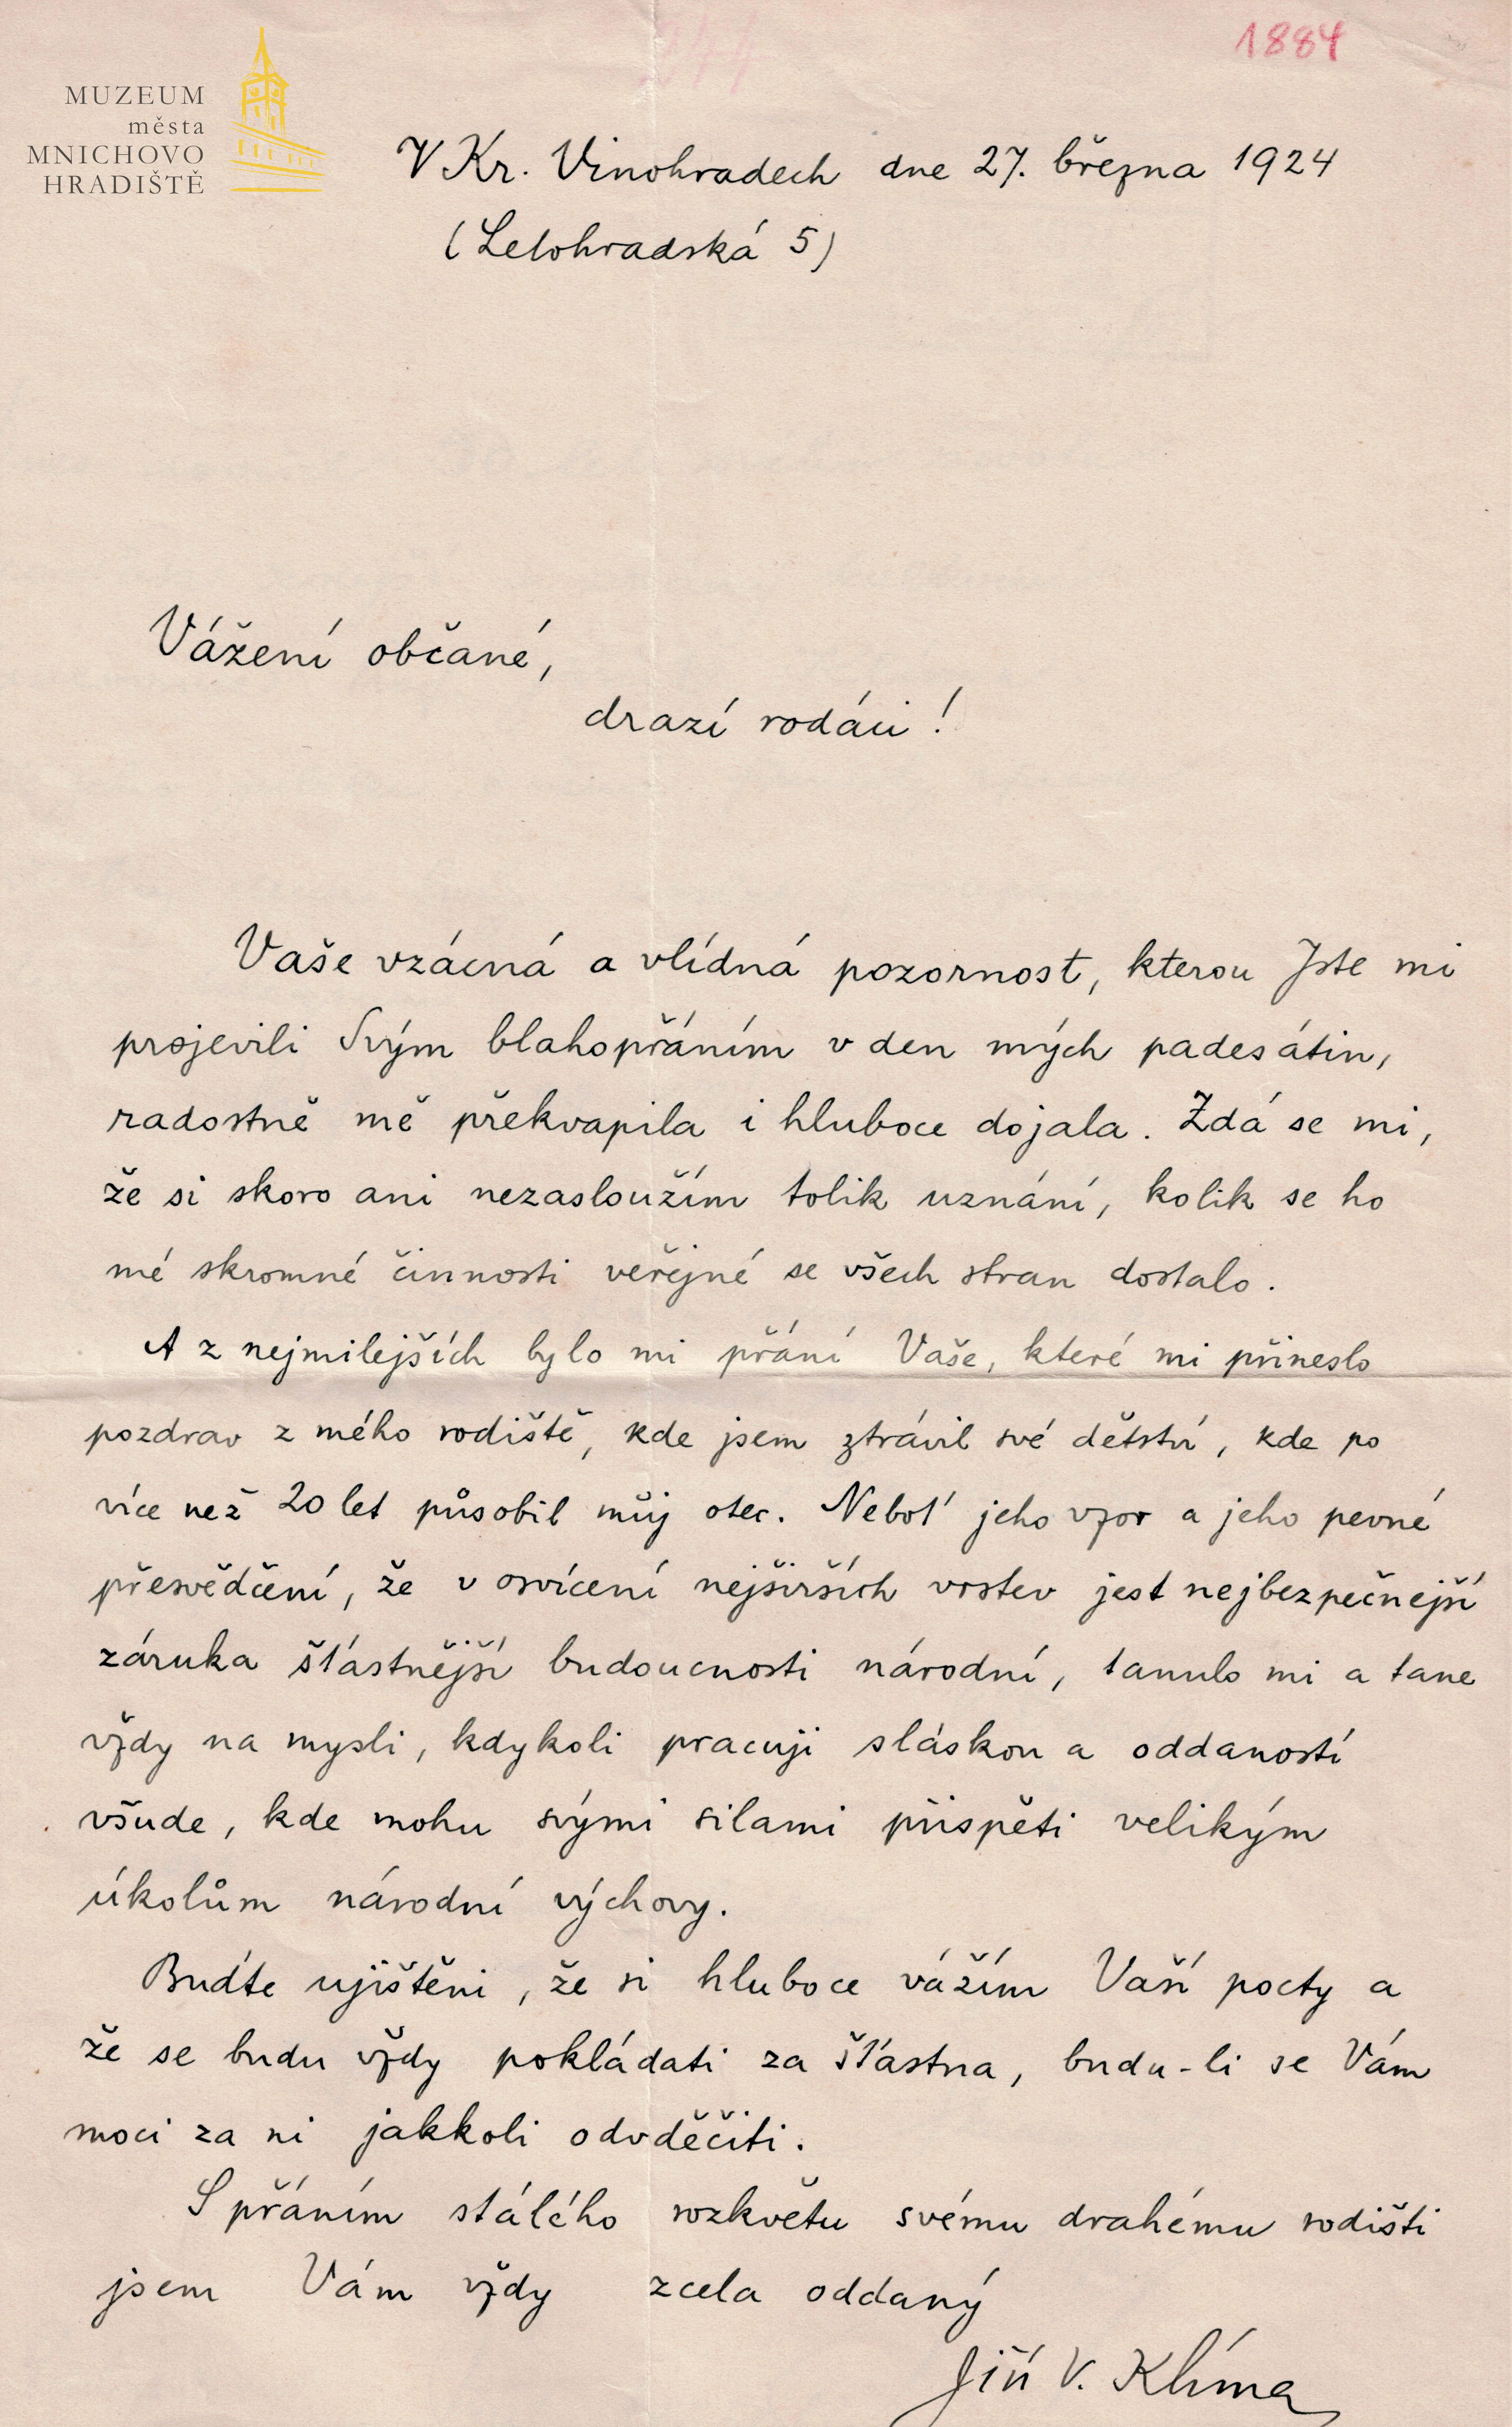 1884
MUZEUM
města
MNICHOVO
HRADIŠTĚ
V Kr. Vinohradech dne 27. března 1924
(Letohradská 5)
Vážení občané,
drazí rodáci!
Vaše vzácná a vlídná pozornost, kterou Jste mi
projevili Svým blahopřáním v den mých padesátin,
radostně mě překvapila i hluboce dojala. Zdá se mi,
že si skoro ani nezasloužím tolik uznání, kolik se ho
mé skromné činnosti veřejné se všech stran dostalo.
A z nejmilejších bylo mi přání Vaše, které mi přineslo
pozdrav z mého rodiště, kde jsem ztrávil své dětství, kde po
více než 20 let působil můj otec. Neboť jeho vzor a jeho pevné
přesvědčení, že v osvícení nejširších vrstev jest nejbezpečnější
záruka šťastnější budoucnosti národní, tanulo mi a tane
vždy na mysli, kdykoli pracuji s láskou a oddaností
všude, kde mohu svými silami přispěti velikým
úkolům národní výchovy.
Buďte ujištěni, že si hluboce vážím Vaší pocty a
že se budu vždy pokládati za šťastna, budu-li se Vám
moci za ni jakkoli odvděčiti.
S přáním stálého rozkvětu svému drahému rodišti
jsem Vám vždy zcela oddaný
Jiří V. Klíma